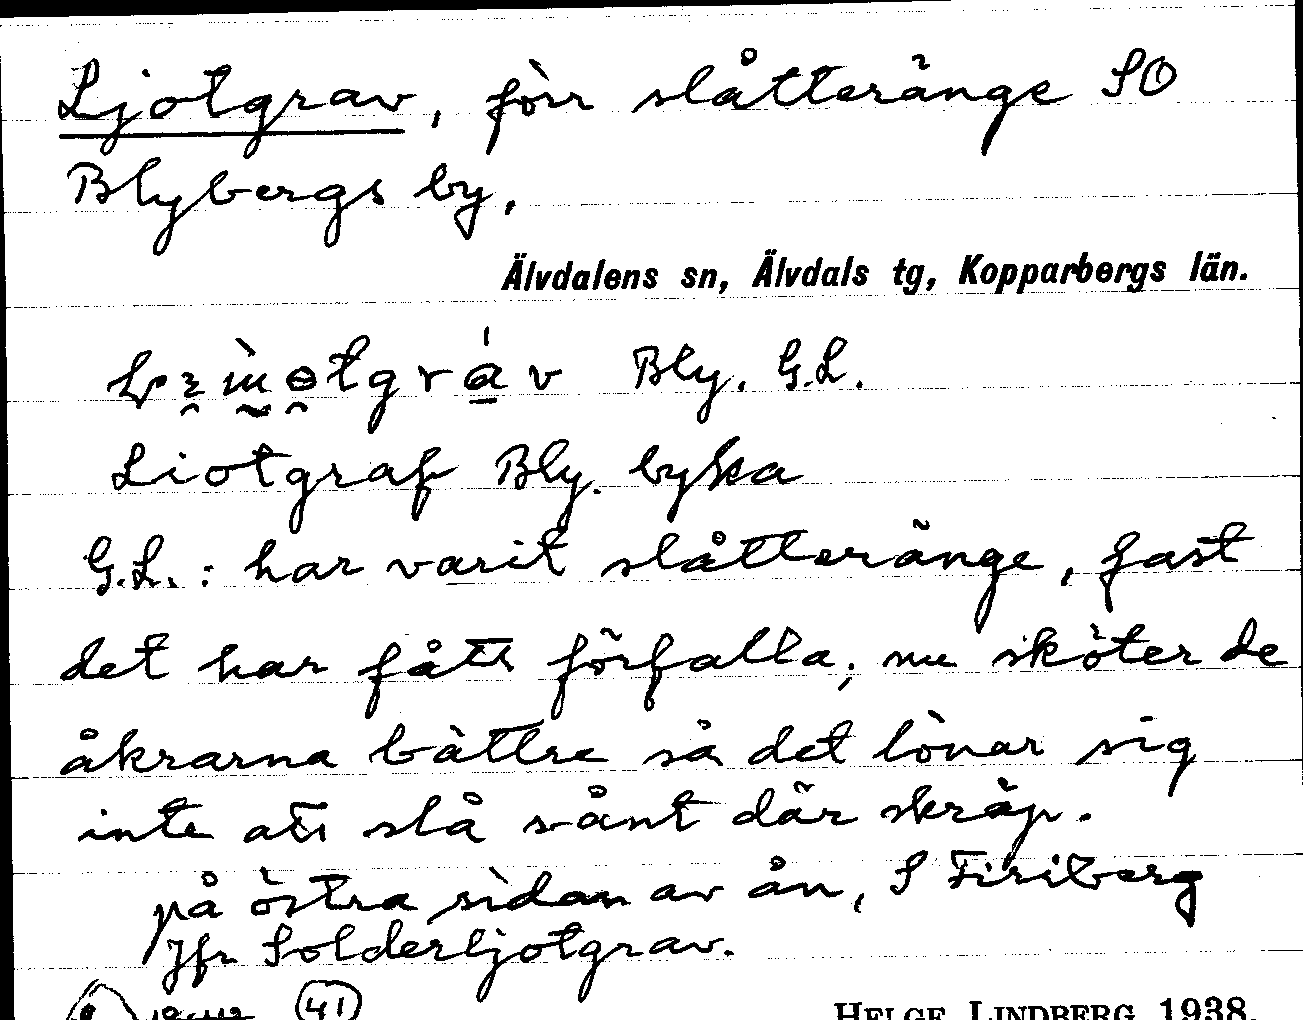 Ljotgrav, förr slåtteränge SO
Blybergs by,
Älvdalens sn, Älvdals tg, Kopparbergs län.
Bly. G.L.
Liotgraf Bly. byka
G.L.: har varit slåtteränge, fast
det har fått förfalla; nu sköter de
åkrarna bättre så det lönar sig
inte att slå sånt där skräp.
på östra sidan av ån, S Firiberg
Jfr Solderljotgrav.
41
HELGE LINDBERG 1938.